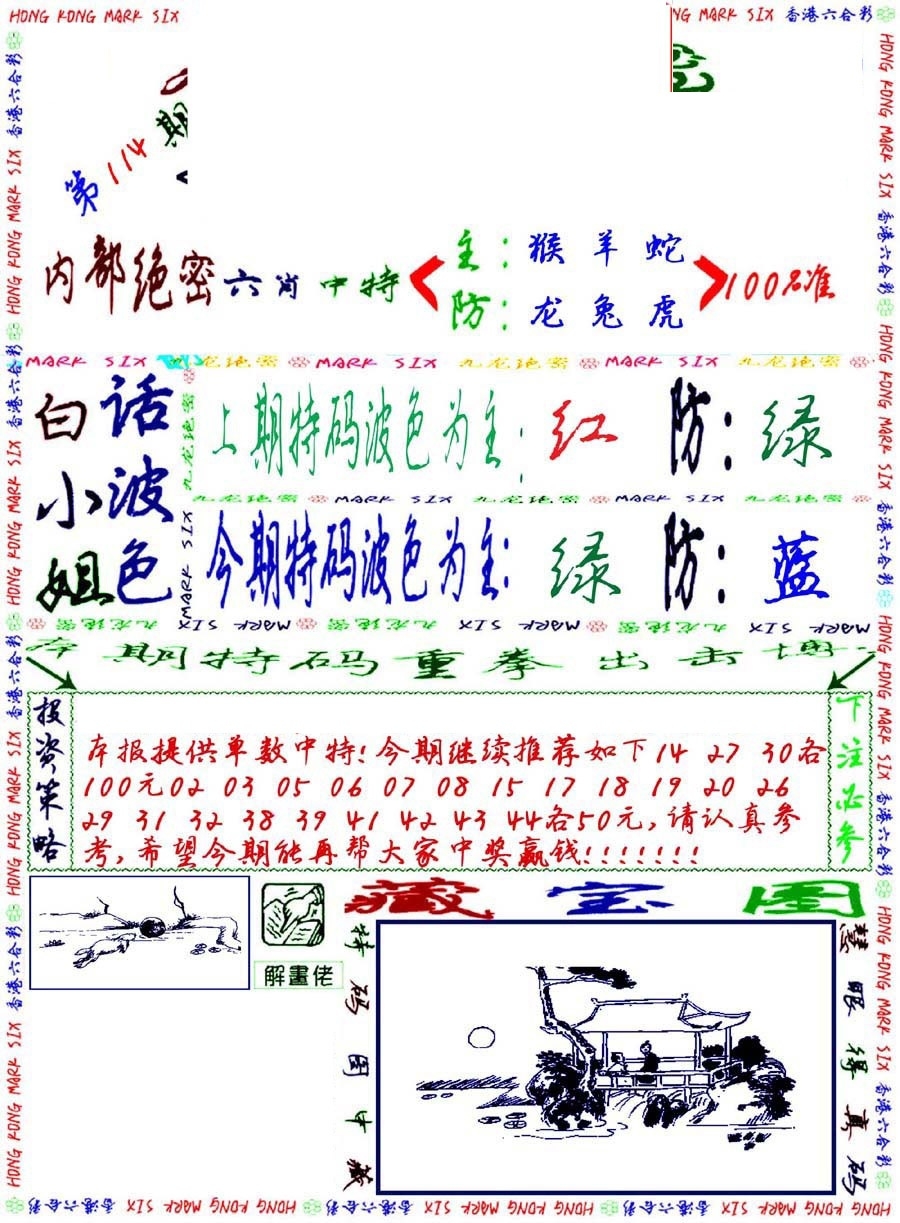 HONG KONG MARK SIX
NG MARK SIX 香港六合彩
第114期
内部绝密六肖中特
主:猴羊蛇
防:龙兔虎
100%准
MARK SIX 九龙绝密 MARK SIX 九龙绝密 MARK SIX 九龙绝密
白话小波姐色
上期特码波色为主:红 防:绿
九龙绝密 MARK SIX 九龙绝密 MARK SIX 九龙绝密
今期特码波色为主:绿 防:蓝
九龙绝密 MARK SIX 九龙绝密 MARK SIX 九龙绝密 MARK SIX
期特码重拳出击
投资策略
本报提供单数中特!今期继续推荐如下14 27 30各
100元02 03 05 06 07 08 15 17 18 19 20 26
29 31 32 38 39 41 42 43 44各50元,请认真参
考,希望今期能再帮大家中奖赢钱!!!!!!!
下注必参
解畫佬
藏宝图
特码图中藏
慧眼得真码
HONG KONG MARK SIX 香港六合彩